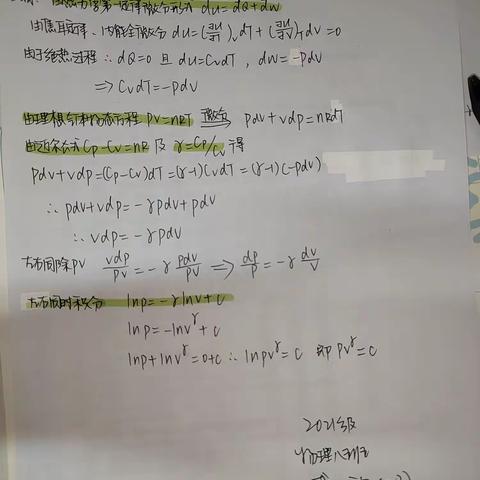 由热力学第一定律微分形式 dU = dQ + dW
由焦耳定律, 内能全微分 dU = (∂U/∂T)ᵥ dT + (∂U/∂V)ₜ dV = 0
由于绝热过程 ∴ dQ = 0 且 dU = CvdT, dW = -pdV
⇒ CvdT = -pdV
由理想气体的状态方程 PV = nRT 微分⇒ pdV + Vdp = nRdT
由迈尔公式 Cp - Cv = nR 及 γ = Cp/Cv 得
pdV + Vdp = (Cp - Cv)dT = (γ-1)CvdT = (γ-1)(-pdV)
∴ pdV + Vdp = -γpdV + pdV
∴ Vdp = -γpdV
左右同除PV Vdp/PV = -γ pdV/PV ⇒ dp/p = -γ dV/V
左右同时积分 lnp = -γlnV + C
lnp = -lnV^γ + C
lnp + lnV^γ = 0 + C ∴ lnpV^γ = C 即 PV^γ = C
2021级
物理八班